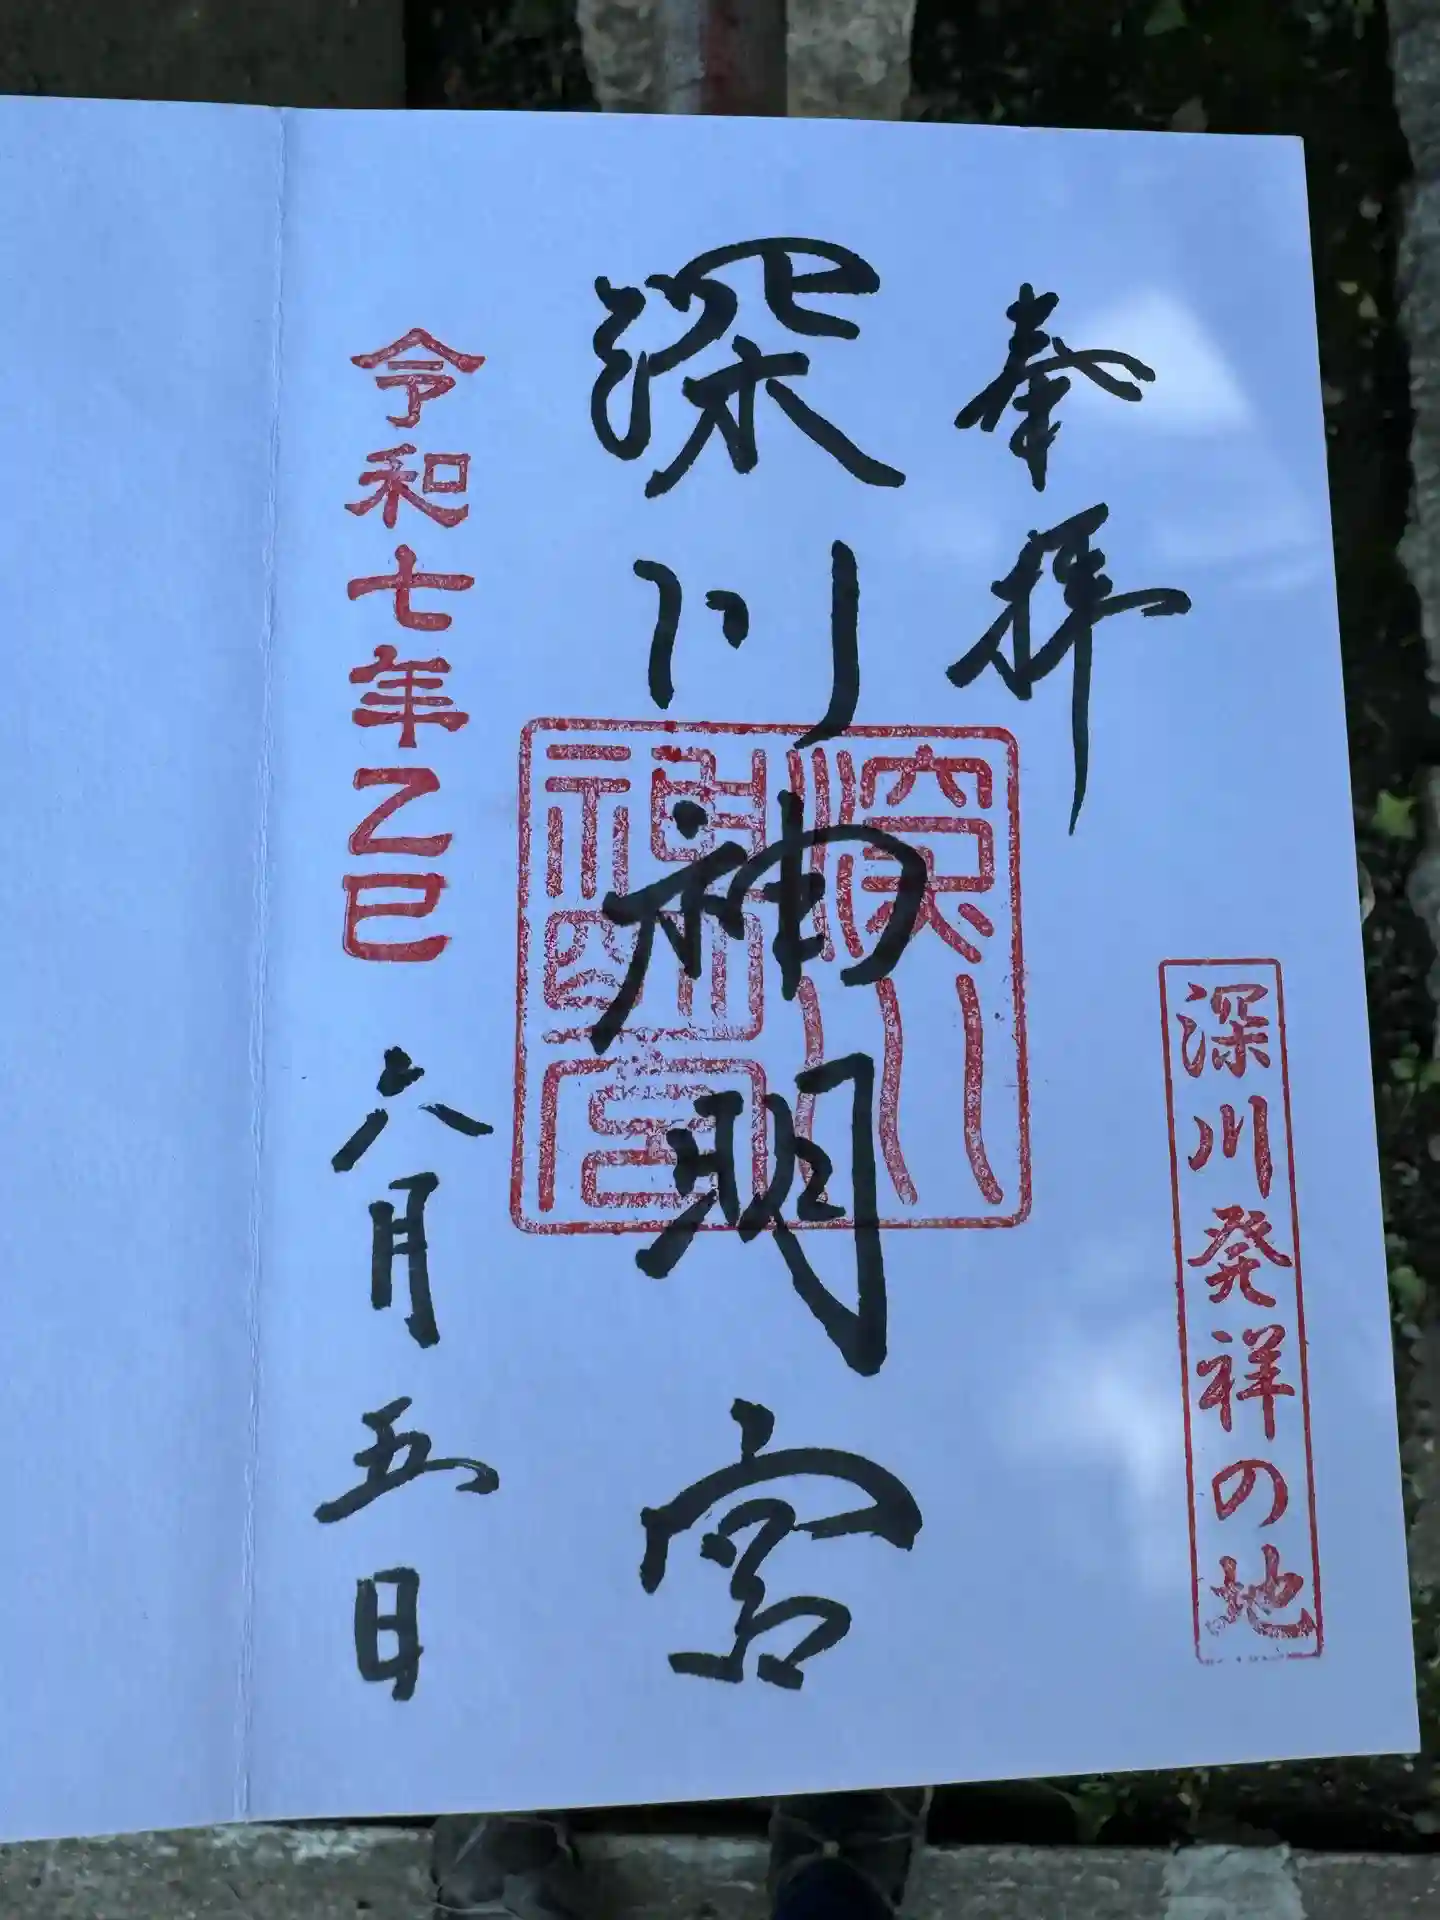 奉拝
深川発祥の地
深川神明宮
深川神明宮
令和七年乙巳 六月五日